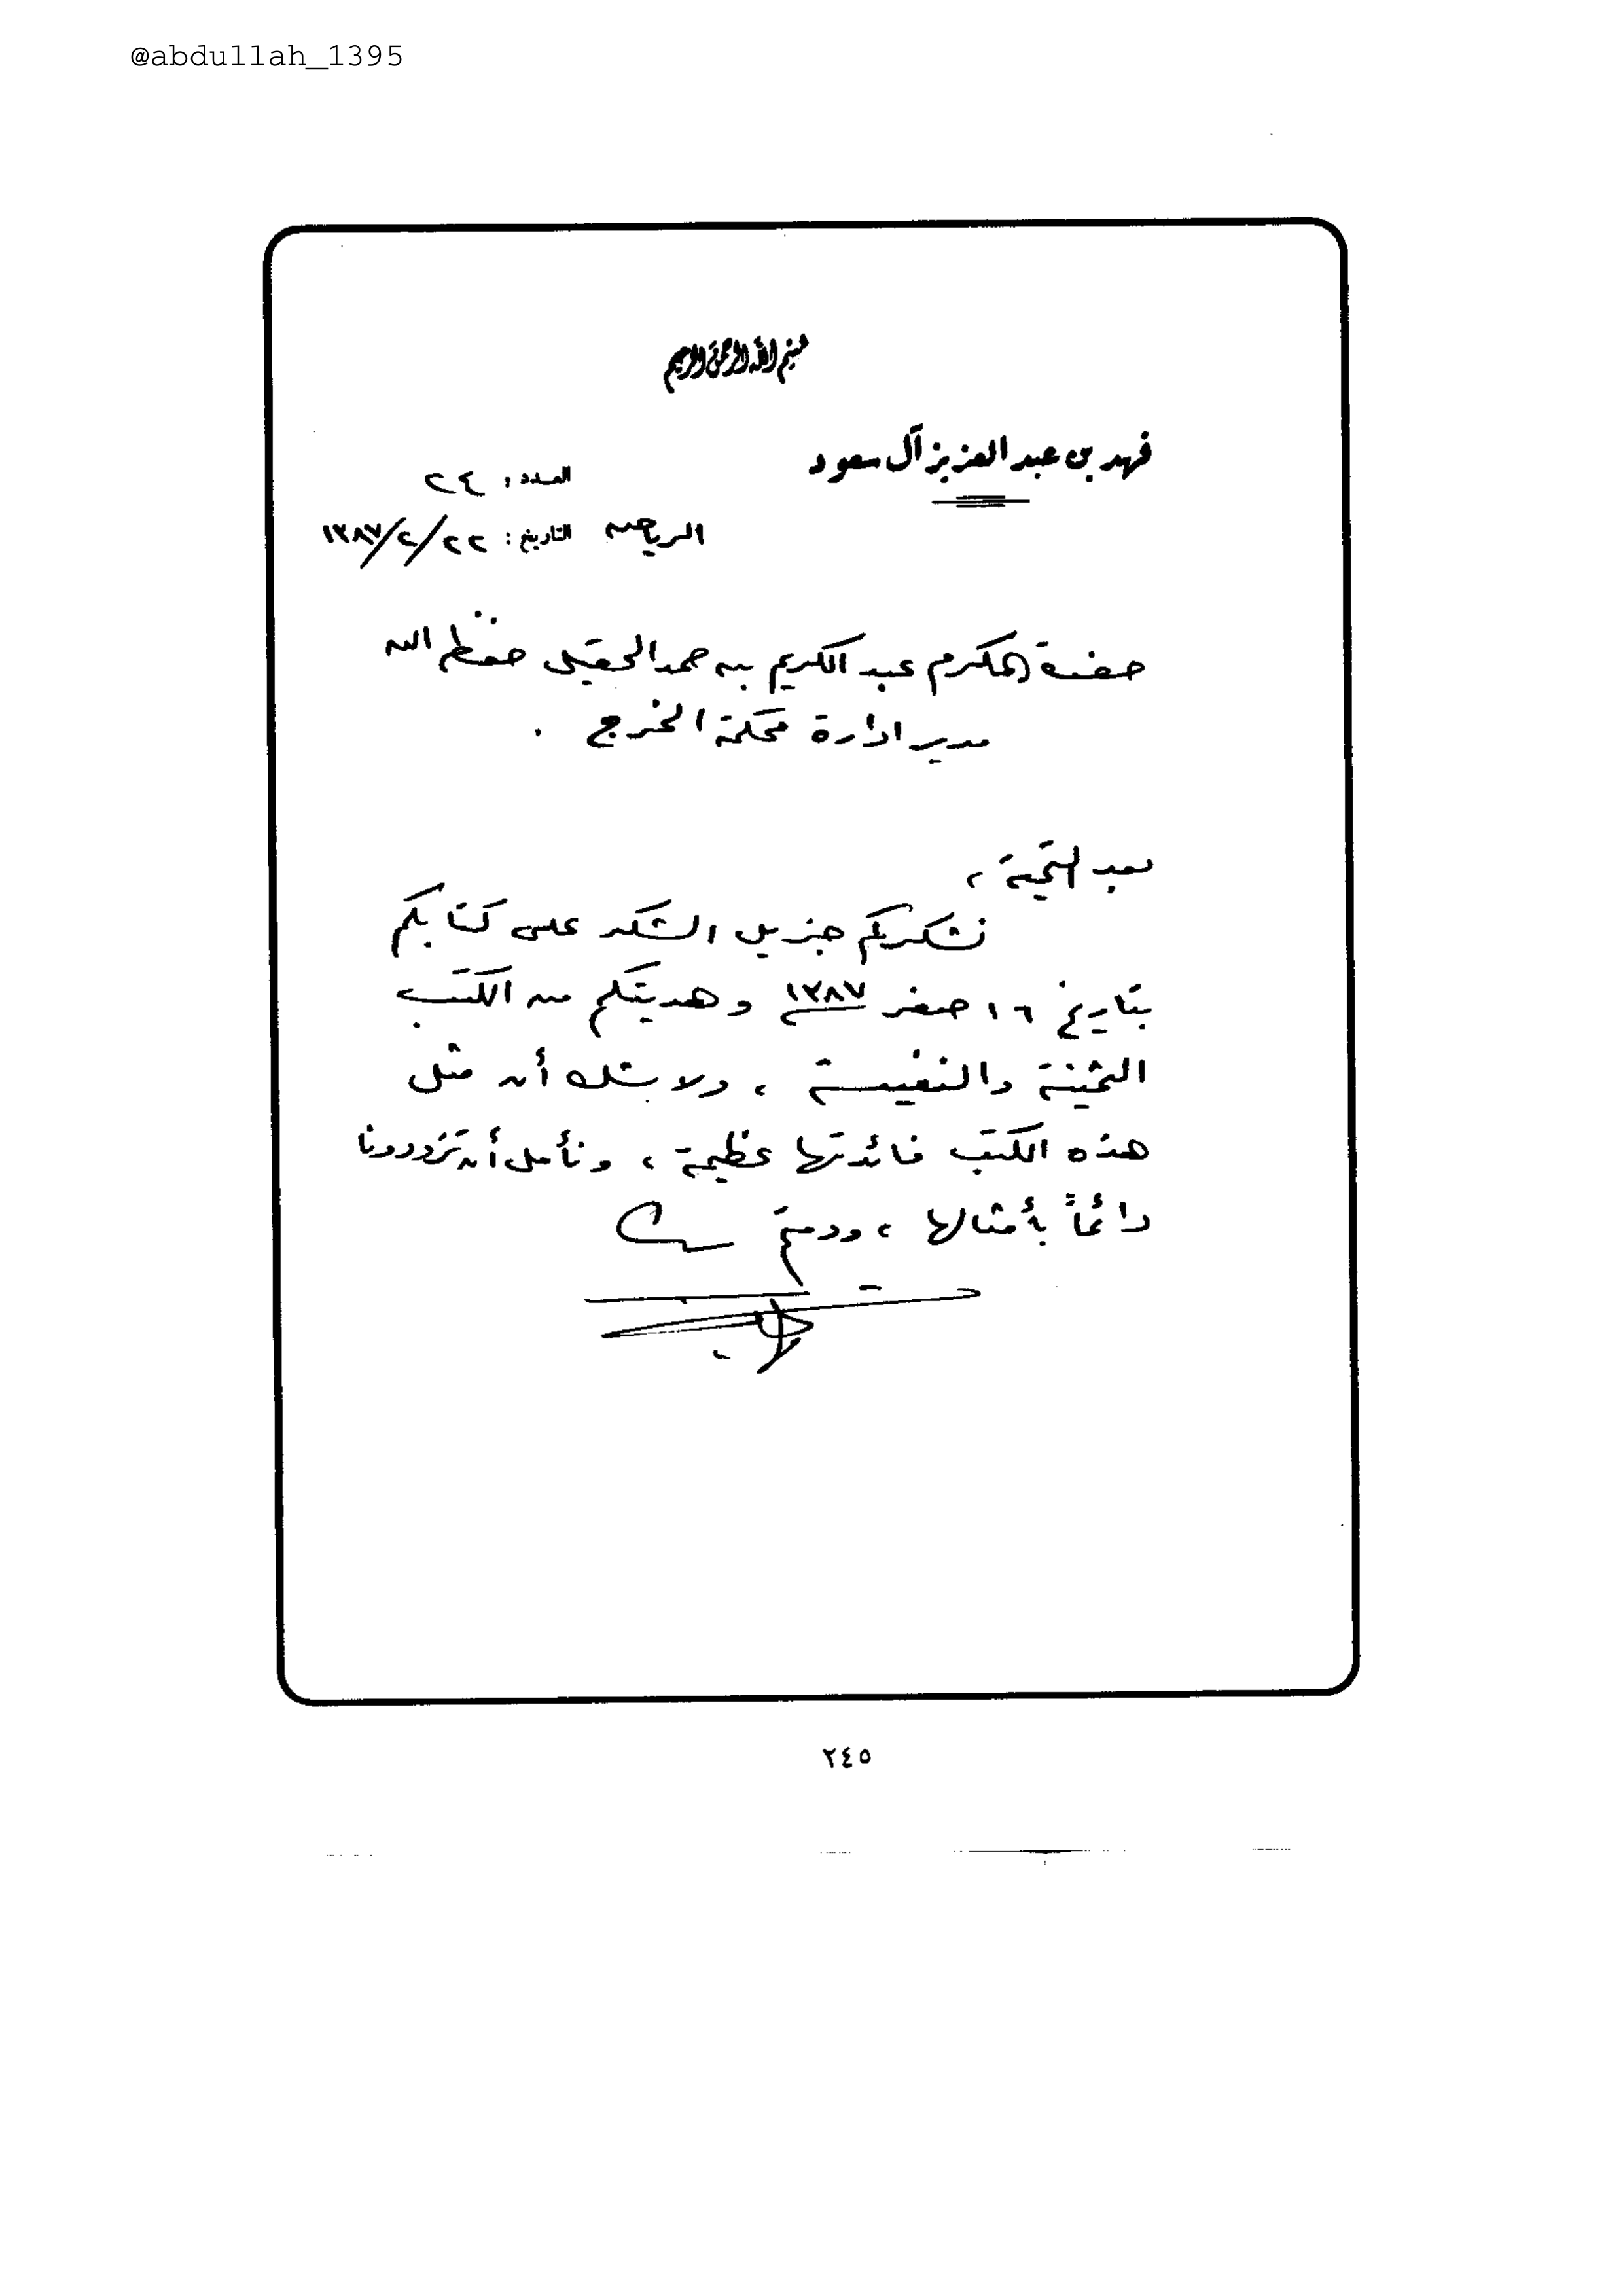 @abdullah_1395
بسم الله الرحمن الرحيم
فهد بن عبد العزيز آل سعود
العدد : ٢٤
الرياض التاريخ : ٢٢/٢/١٣٨٧
حضرة المكرم عبد الكريم بن حمد الحقيل حفظه الله
مدير ادارة محكمة الخرج .
بعد التحية ،
نشكركم جزيل الشكر على كتابكم
بتاريخ ١٦ صفر ١٣٨٧ وهديتكم من الكتب
الثمينة والنفيسة ، ولا شك أن مثل
هذه الكتب فائدتها عظيمة ، ونأمل أن تزودونا
دائماً بأمثالها ، ودمتم
٢٤٥